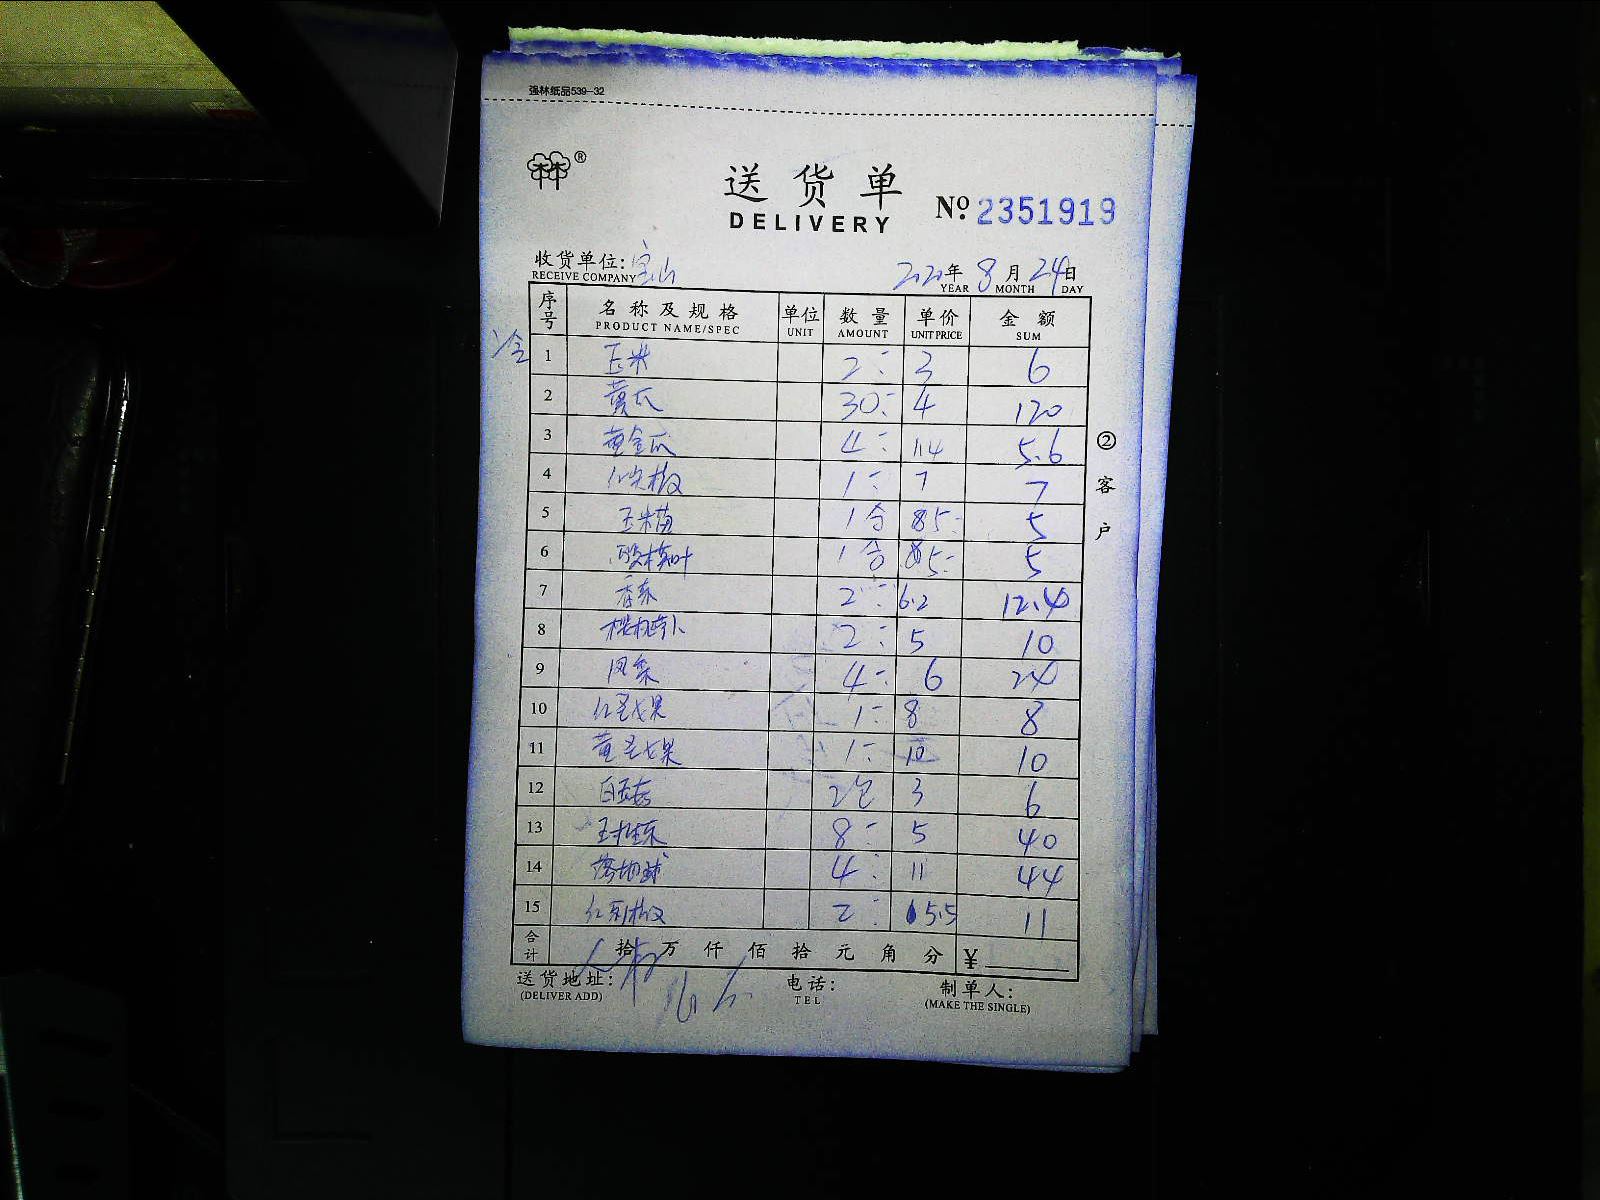 强林纸品539-32
送货单
DELIVERY
Nº 2351919
收货单位: 宝山
RECEIVE COMPANY
2020年 8月 24日
YEAR MONTH DAY
序号 名称及规格 单位 数量 单价 金额
PRODUCT NAME/SPEC UNIT AMOUNT UNIT PRICE SUM
冷
1 玉米 2 3 6
2 黄瓜 30 4 120
3 黄金瓜 4 1.4 5.6
4 红尖椒 1 7 7
5 玉米苗 1合 5 5
6 酸模叶 1合 5 5
7 香菜 2 6.2 12.4
8 樱桃萝卜 2 5 10
9 凤梨 4 6 24
10 红圣女果 1 8 8
11 黄圣女果 1 10 10
12 白玉菇 2包 3 6
13 8 5 40
14 4 11 44
15 2 5.5 11
合计 拾万仟佰拾元角分 ¥
送货地址:
(DELIVER ADD)
电话:
TEL
制单人:
(MAKE THE SINGLE)
②客户